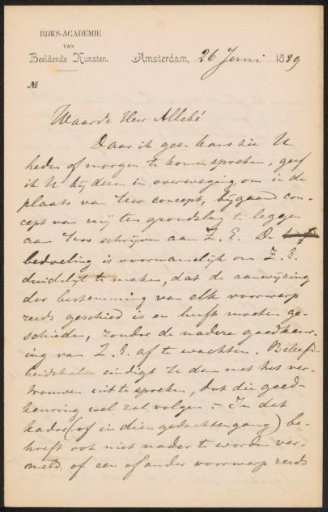 RIJKS-ACADEMIE
VAN
Beeldende Kunsten.
Amsterdam, 26 Juni 1889
No
Waarde Heer Allebé
Daar ik geen kans zie U
heden of morgen te komen spreken, geef
ik U bij dezen in overweging om in de
plaats van Uw concept, bijgaand con-
cept van mij ten grondslag te leggen
aan Uw schrijven aan Z. E. De
bedoeling is voornamelijk om Z. E.
duidelijk te maken, dat de aanwijzing
der bestemming van elk voorwerp
reeds geschied is en heeft moeten ge-
schieden, zonder de nadere goedkeu-
ring van Z. E. af te wachten. Beleefd-
heidshalve eindigt ze dan met het ver-
trouwen uit te spreken, dat die goed-
keuring wel zal volgen. - In dat
kader (of in dien gedachtengang) be-
hoeft ook niet nader te worden ver-
meld of een of ander voorwerp reeds